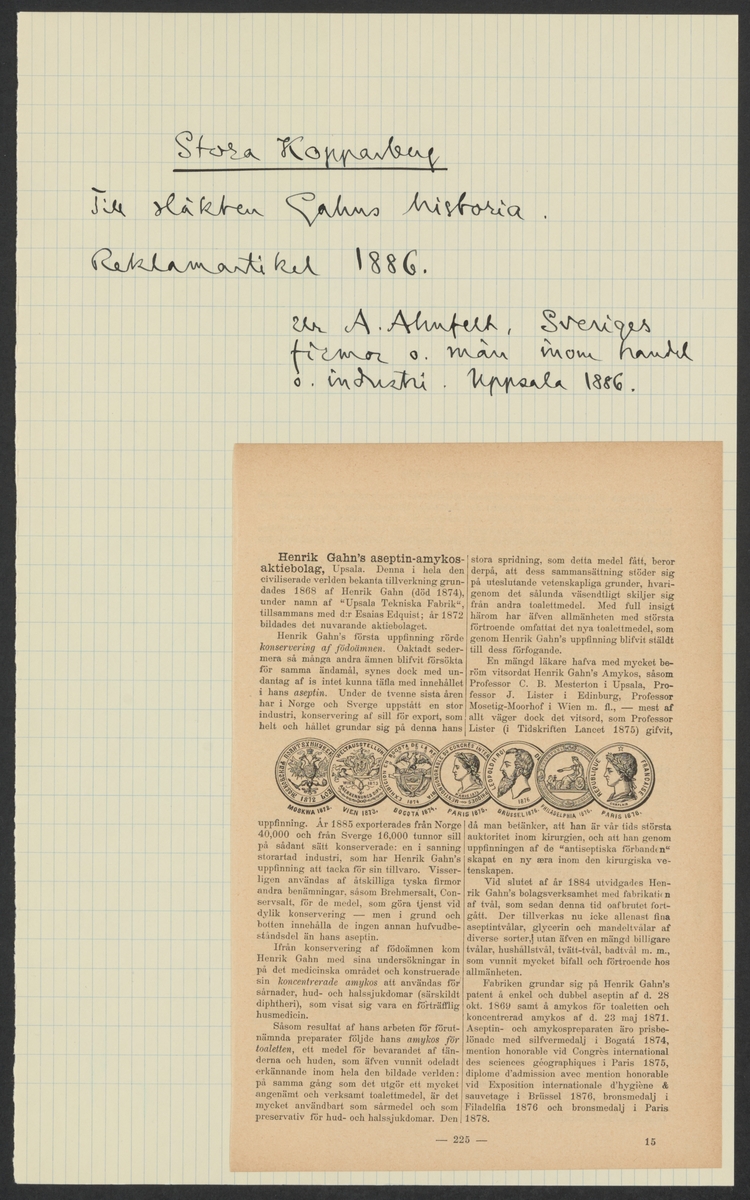 Stora Kopparberg
Till släkten Gahns historia.
Reklamartikel 1886.
ur A. Ahnfelt, Sveriges
firmor o. män inom handel
o. industri. Uppsala 1886.
Henrik Gahn's aseptin-amykos-
aktiebolag, Upsala. Denna i hela den
civiliserade verlden bekanta tillverkning grun-
dades 1868 af Henrik Gahn (död 1874),
under namn af "Upsala Tekniska Fabrik",
tillsammans med d:r Esaias Edquist; år 1872
bildades det nuvarande aktiebolaget.
Henrik Gahn's första uppfinning rörde
konservering af födoämnen. Oaktadt seder-
mera så många andra ämnen blifvit försökta
för samma ändamål, synes dock med un-
dantag af is intet kunna täfla med innehållet
i hans aseptin. Under de tvenne sista åren
har i Norge och Sverge uppstått en stor
industri, konservering af sill för export, som
helt och hållet grundar sig på denna hans
stora spridning, som detta medel fått, beror
derpå, att dess sammansättning stöder sig
på uteslutande vetenskapliga grunder, hvari-
genom det sålunda väsendtligt skiljer sig
från andra toalettmedel. Med full insigt
härom har äfven allmänheten med största
förtroende omfattat det nya toalettmedel, som
genom Henrik Gahn's uppfinning blifvit stäldt
till dess förfogande.
En mängd läkare hafva med mycket be-
röm vitsordat Henrik Gahn's Amykos, såsom
Professor C. B. Mesterton i Upsala, Pro-
fessor J. Lister i Edinburg, Professor
Mosetig-Moorhof i Wien m. fl., — mest af
allt väger dock det vitsord, som Professor
Lister (i Tidskriften Lancet 1875) gifvit,
MOSKWA 1872. VIEN 1873. BOGOTA 1874. PARIS 1875. BRÜSSEL 1876. PHILADELPHIA 1876. PARIS 1878.
uppfinning. År 1885 exporterades från Norge
40,000 och från Sverge 16,000 tunnor sill
på sådant sätt konserverade: en i sanning
storartad industri, som har Henrik Gahn's
uppfinning att tacka för sin tillvaro. Visser-
ligen användas af åtskilliga tyska firmor
andra benämningar, såsom Brehmersalt, Con-
servsalt, för de medel, som göra tjenst vid
dylik konservering — men i grund och
botten innehålla de ingen annan hufvudbe-
ståndsdel än hans aseptin.
Ifrån konservering af födoämnen kom
Henrik Gahn med sina undersökningar in
på det medicinska området och konstruerade
sin koncentrerade amykos att användas för
sårnader, hud- och halssjukdomar (särskildt
diphtheri), som visat sig vara en förträfflig
husmedicin.
Såsom resultat af hans arbeten för förut-
nämnda preparater följde hans amykos för
toaletten, ett medel för bevarandet af tän-
derna och huden, som äfven vunnit odeladt
erkännande inom hela den bildade verlden:
på samma gång som det utgör ett mycket
angenämt och verksamt toalettmedel, är det
mycket användbart som sårmedel och som
preservativ för hud- och halssjukdomar. Den
då man betänker, att han är vår tids största
auktoritet inom kirurgien, och att han genom
uppfinningen af de "antiseptiska förbanden"
skapat en ny æra inom den kirurgiska ve-
tenskapen.
Vid slutet af år 1884 utvidgades Hen-
rik Gahn's bolagsverksamhet med fabrikation
af tvål, som sedan denna tid oafbrutet fort-
gått. Der tillverkas nu icke allenast fina
aseptintvålar, glycerin och mandeltvålar af
diverse sorter, utan äfven en mängd billigare
tvålar, hushållstvål, tvätt-tvål, badtvål m. m.,
som vunnit mycket bifall och förtroende hos
allmänheten.
Fabriken grundar sig på Henrik Gahn's
patent å enkel och dubbel aseptin af d. 28
okt. 1869 samt å amykos för toaletten och
koncentrerad amykos af d. 23 maj 1871.
Aseptin- och amykospreparaten äro prisbe-
lönade med silfvermedalj i Bogatá 1874,
mention honorable vid Congrès international
des sciences géographiques i Paris 1875,
diplome d'admission avec mention honorable
vid Exposition internationale d'hygiène &
sauvetage i Brüssel 1876, bronsmedalj i
Filadelfia 1876 och bronsmedalj i Paris
1878.
— 225 —
15